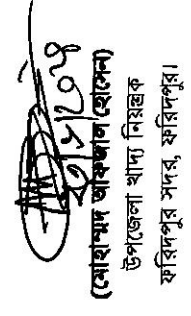 (মোহাম্মদ আফজাল হোসেন)
উপজেলা খাদ্য নিয়ন্ত্রক
ফরিদপুর সদর, ফরিদপুর।